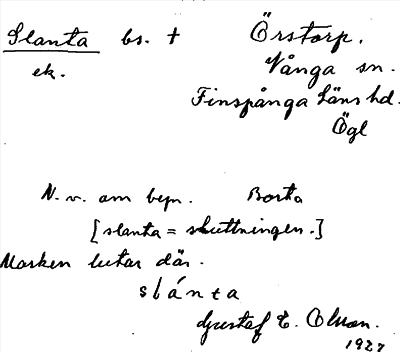 Slanta bs. † Örstorp.
ek. Vånga sn.
Finspånga läns hd.
Ögl
N. v. om byn. Borta
[slanta = sluttningen.]
Marken lutar där.
slánta
Gustaf E. Olsson.
1927